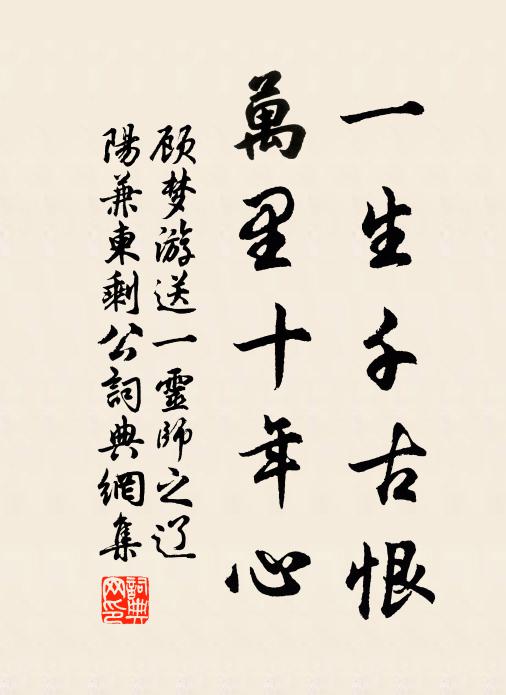 一生千古恨
萬里十年心
顾梦游送一靈師之辽
陽兼東剩公詞典網集
詞典網印